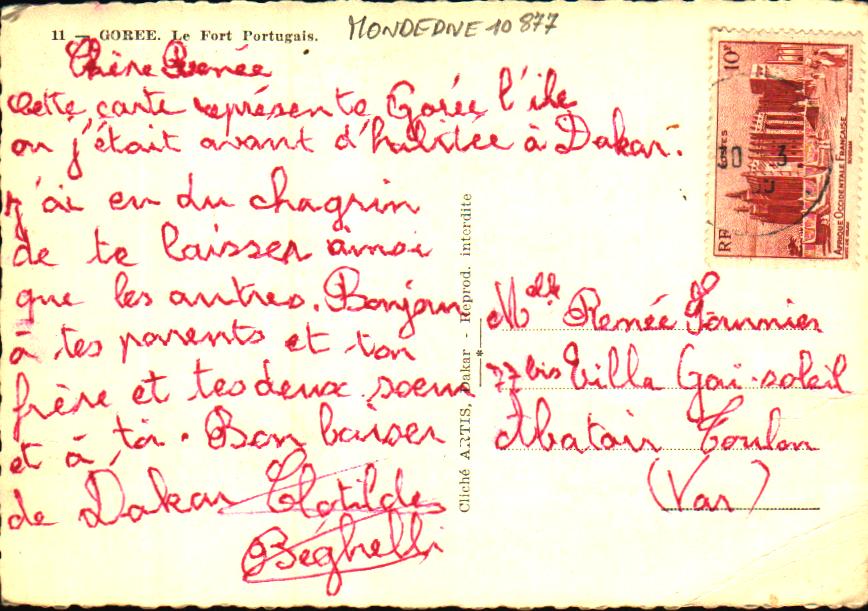 11 — GOREE. Le Fort Portugais.
MONDEDNE 10 877
Chère Renée
cette carte représente Gorée l'ile
ou j'était avant d'habitée à Dakar.
j'ai eu du chagrin
de te laisser ainsi
que les autres. Bonjour
à tes parents et ton
frère et tes deux soeur
et à toi. Bon baiser
de Dakar Clotilde
Béghelli
Cliché ARTIS, Dakar - Reprod. interdite
10F
POSTES
RF
AFRIQUE OCCIDENTALE FRANÇAISE
30 3.
Mdlle Renée Fournier
77 bis Villa Gai-soleil
Toulon
(Var)